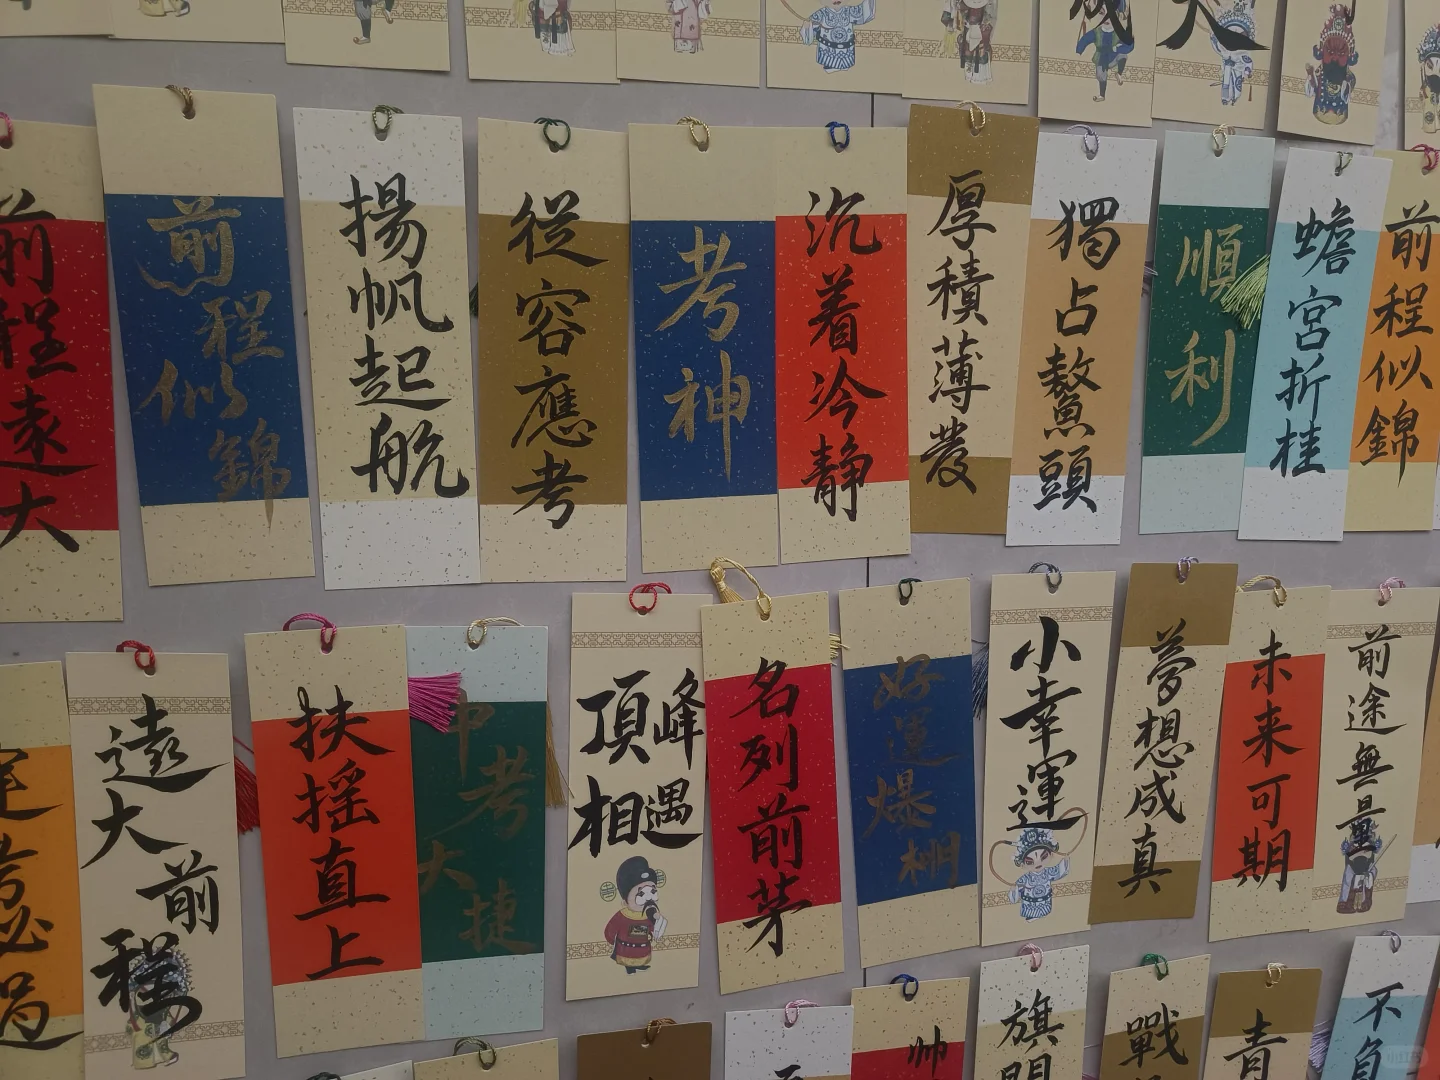 成
大
前程遠大
前程似錦
揚帆起航
從容應考
考神
沉着冷静
厚積薄發
獨占鰲頭
順利
蟾宮折桂
前程似錦
逢考必過
遠大前程
扶摇直上
中考大捷
頂峰相遇
名列前茅
好運爆棚
小幸運
夢想成真
未来可期
前途無量
帅
旗開
戰
青
不負
小红书